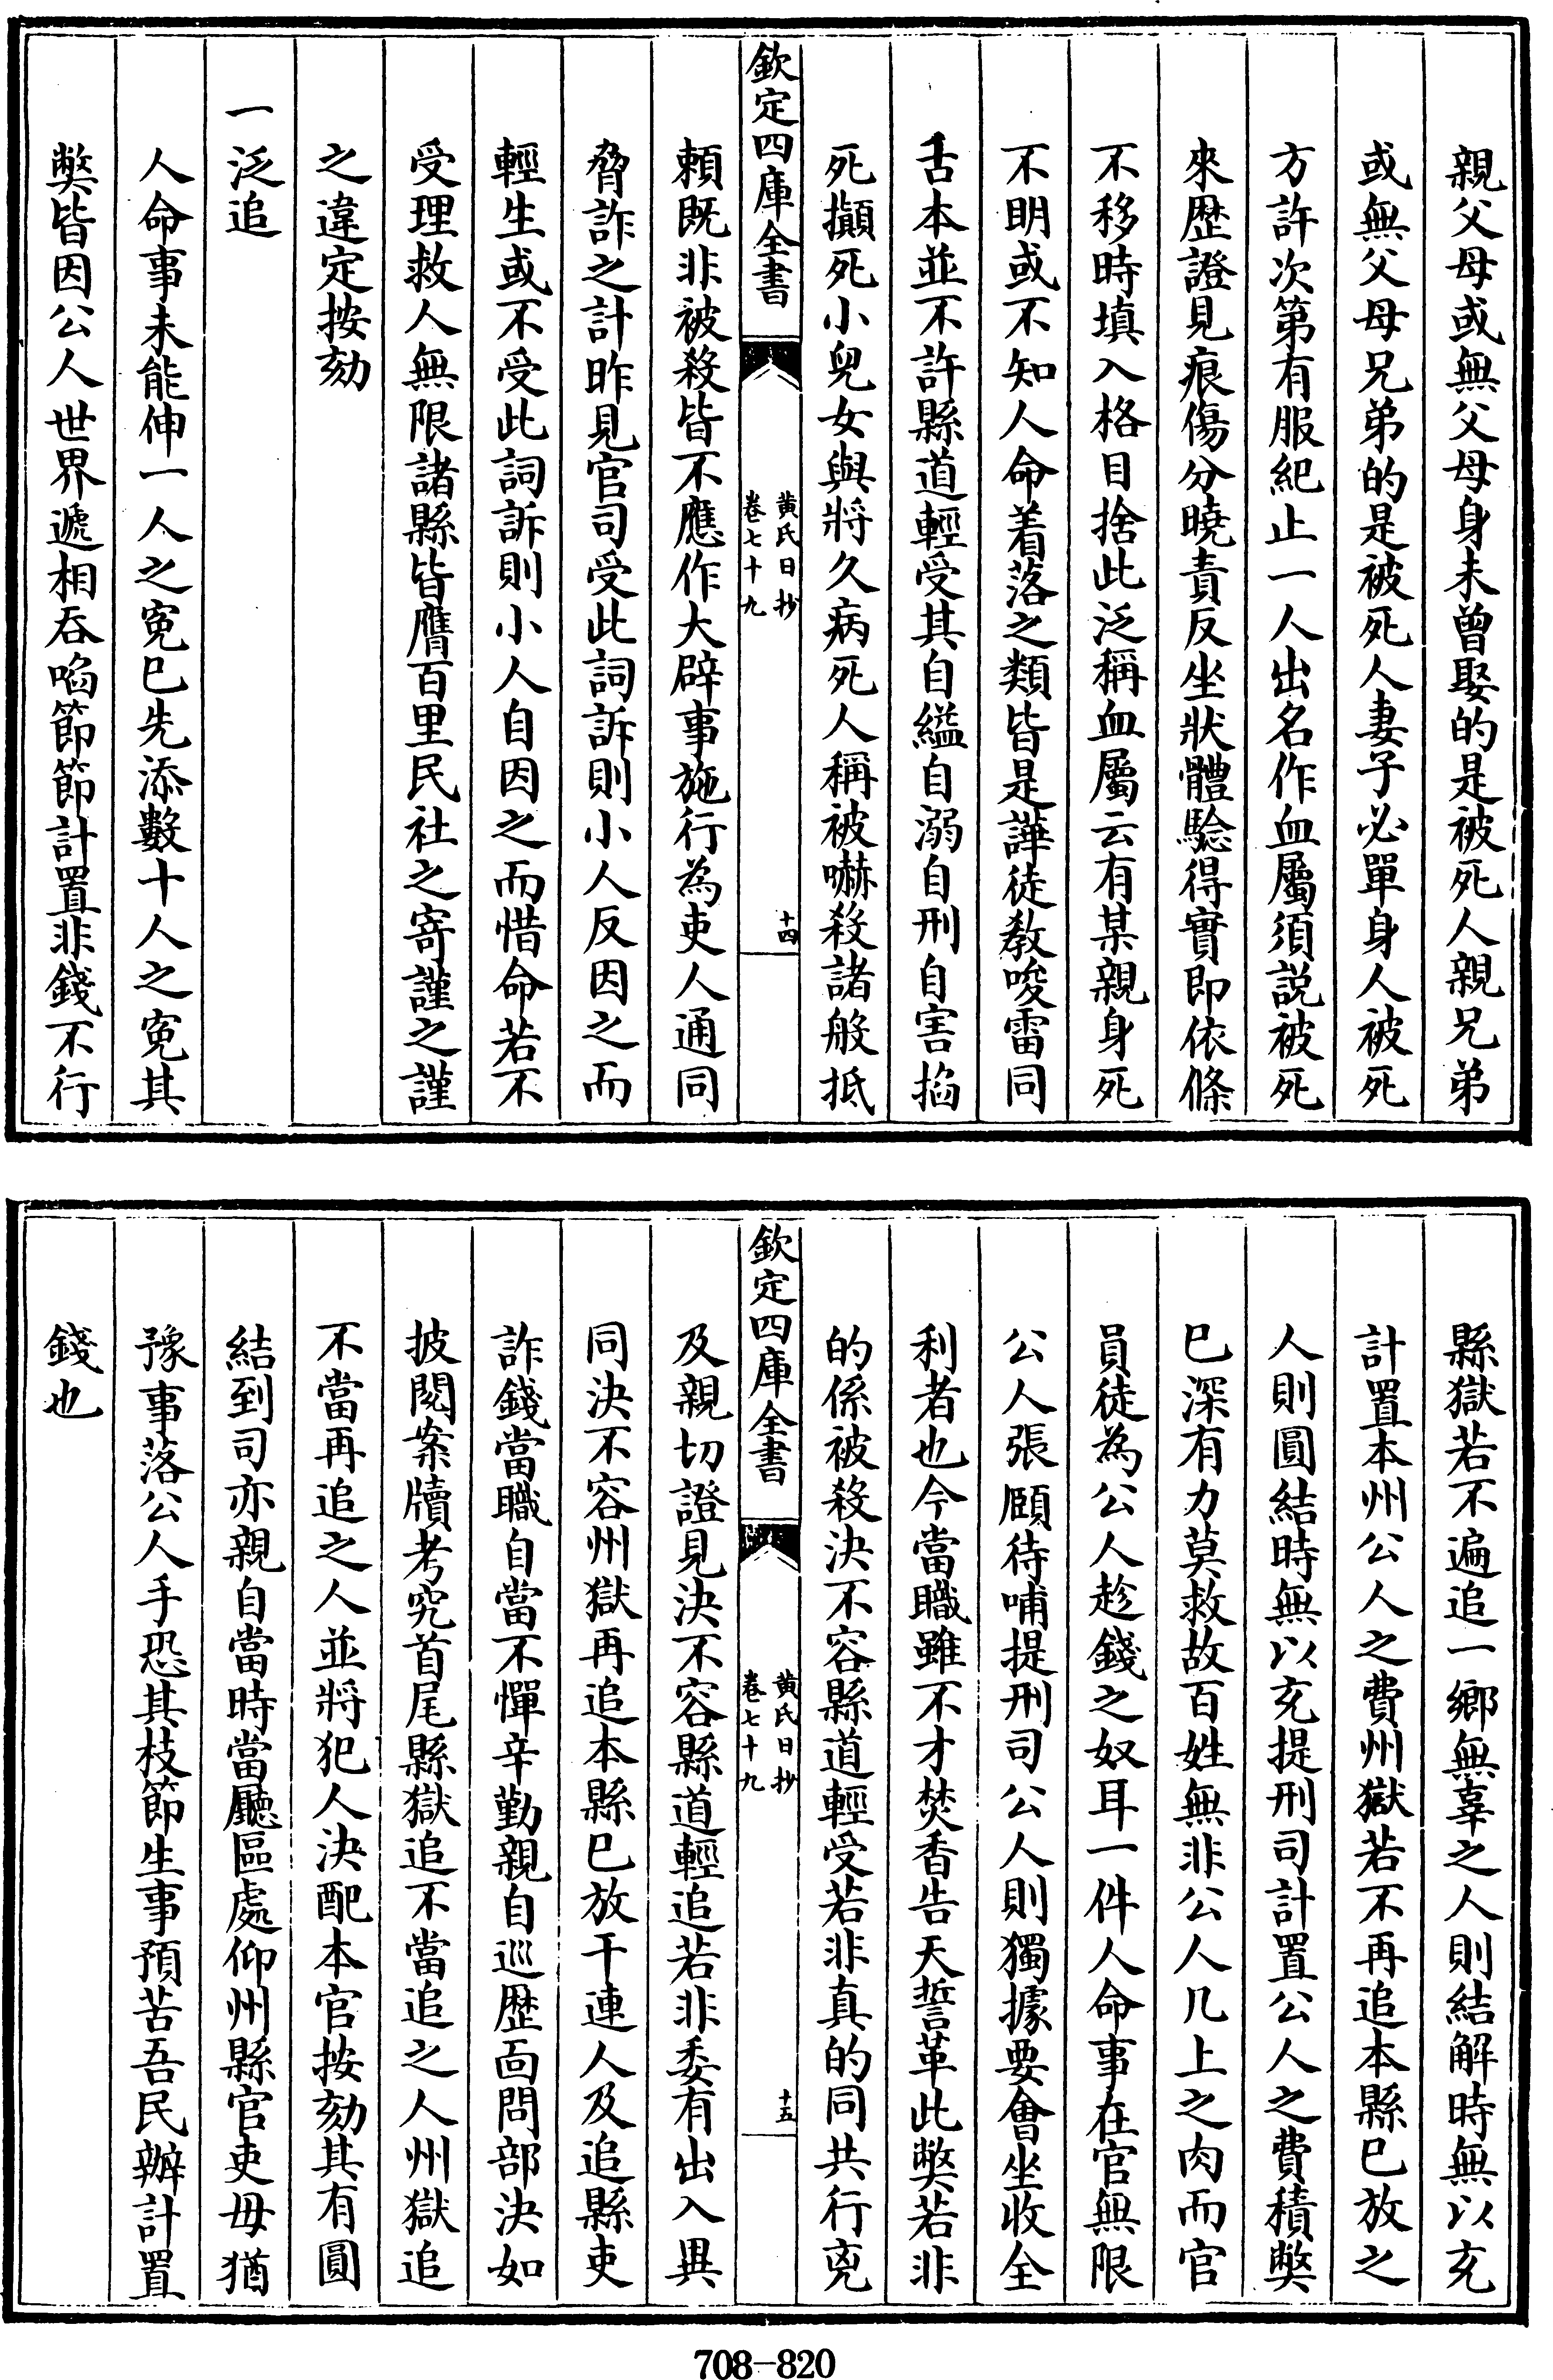 親父母或無父母身未曾娶的是被死人親兄弟
或無父母兄弟的是被死人妻子必單身人被死
方許次第有服紀止一人出名作血屬須説被死
來歴證見痕傷分曉責反坐狀體騐得實即依條
不移時填入格目捨此泛稱血屬云有某親身死
不明或不知人命着落之類皆是譁徒教唆雷同
舌本並不許縣道輕受其自縊自溺自刑自害掐
死攧死小兒女與將久病死人稱被嚇殺諸般抵
欽定四庫全書
黄氏日抄
卷七十九
十四
頼既非被殺皆不應作大辟事施行為吏人通同
脅詐之計昨見官司受此詞訴則小人反因之而
輕生或不受此詞訴則小人自因之而惜命若不
受理救人無限諸縣皆膺百里民社之寄謹之謹
之違定按劾
一泛追
人命事未能伸一人之寃已先添數十人之寃其
弊皆因公人世界遞相吞啗節節計置非錢不行
縣獄若不遍追一鄉無辜之人則結解時無以充
計置本州公人之費州獄若不再追本縣已放之
人則圓結時無以充提刑司計置公人之費積弊
已深有力莫救故百姓無非公人几上之肉而官
員徒為公人趁錢之奴耳一件人命事在官無限
公人張頤待哺提刑司公人則獨據要會坐收全
利者也今當職雖不才焚香告天誓革此弊若非
的係被殺決不容縣道輕受若非真的同共行兇
欽定四庫全書
黄氏日抄
卷七十九
十五
及親切證見決不容縣道輕追若非委有出入異
同決不容州獄再追本縣已放干連人及追縣吏
詐錢當職自當不憚辛勤親自巡歴面問部決如
披閲案牘考究首尾縣獄追不當追之人州獄追
不當再追之人並將犯人決配本官按劾其有圓
結到司亦親自當時當廳區處仰州縣官吏毋猶
豫事落公人手恐其枝節生事預苦吾民辦計置
錢也
708-820